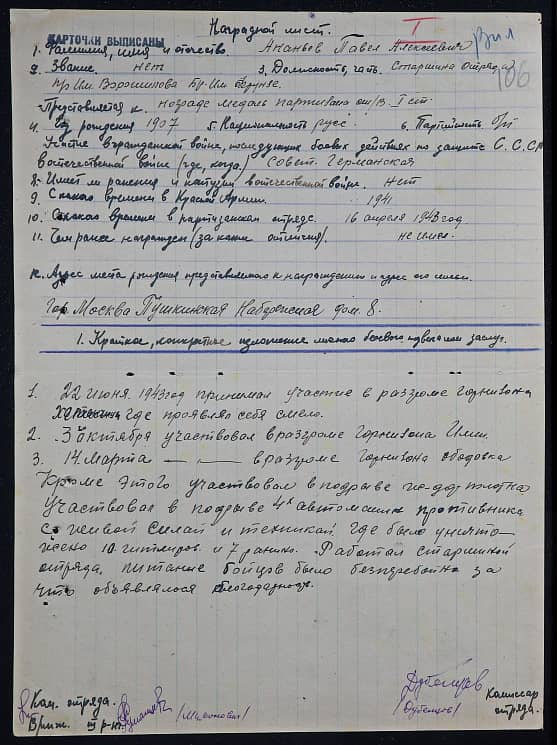 Наградной лист.
I
КАРТОЧКИ ВЫПИСАНЫ
1. Фамилия, имя и отчество. Ананьев Павел Алексеевич
2. Звание. нет 3. Должность, часть. Старшина отряда
106
пр Им. Ворошилова Бр-Им Фрунзе.
Представляется к. награде медаль партизана от/в. I ст.
4. Год рождения 1907 5. Национальность русс 6. Партийность Б/п
Участие в гражданской войне, последующих боевых действиях по защите С.С.С.Р
в отечественной войне (где, когда.) Совет. Германская
8. Имеет ли ранения и контузии в отечественной войне. нет
9. С какого времени в Красной Армии. 1941
10. С какого времени в партизанском отряде. 16 апреля 1943 год
11. Чем ранее награжден (за какие отличия). не имел.
12. Адрес места рождения представляемого к награждению и адрес его семьи.
Гор. Москва Пушкинская Набережная дом. 8.
1. Краткое, конкретное изложение личного боевого подвига или заслуг.
1. 22 июня 1943 год принимал участие в разгроме горнизона
где проявлял себя смело.
2. 3 октября участвовал в разгроме горнизона
3. 14 Марта — — в разгроме горнизона
Кроме этого участвовал в подрыве ж-дор полотна
Участвовал в подрыве 4х автомашин противника
с живой силой и техникой где было уничто
жено 10 гитлеров. и 7 ранено. Работал старшиной
отряда, питание бойцов было безперебойна за
что объявлялося благодарность.
Ком. отряда.
Комиссар
отряда.
/Дубенцов/